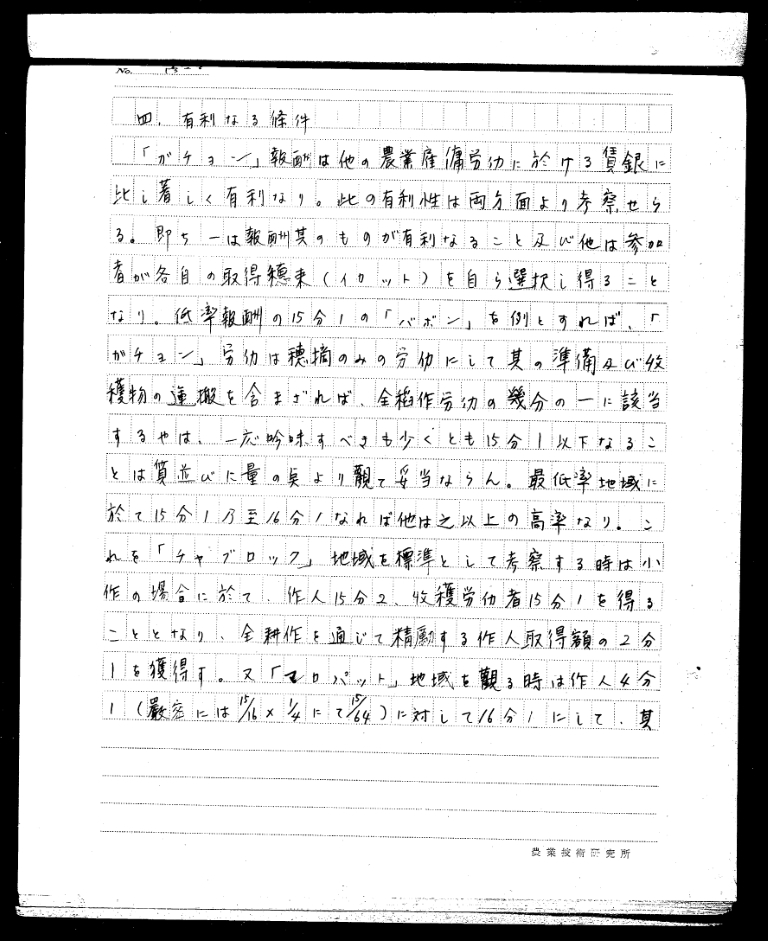 No.
四、有利なる條件
「ガチョン」報酬は他の農業産傭労仂に於ける賃銀に
比し著しく有利なり。此の有利性は両方面より考察せら
る。即ち一は報酬其のものが有利なること及び他は参加
者が各自の取得穂束(イカット)を自ら選択し得ること
なり。低率報酬の15分1の「バボン」を例とすれば、「
ガチョン」労仂は穂摘のみの労仂にして其の準備及び收
穫物の運搬を含まざれば、全稻作労仂の幾分の一に該当
するやは、一応吟味すべきも少くとも15分1以下なるこ
とは質並びに量の点より観て妥当ならん。最低率地域に
於て15分1乃至16分1なれば他は之以上の高率なり。こ
れを「チャブロック」地域を標準として考察する時は小
作の場合に於て、作人15分2、收穫労仂者15分1を得る
こととなり、全耕作を通じて精励する作人取得額の2分
1を獲得す。又「マロパット」地域を觀る時は作人4分
1(嚴密には15/16×1/4にて15/64)に対して16分1にして、其
農業技術研究所